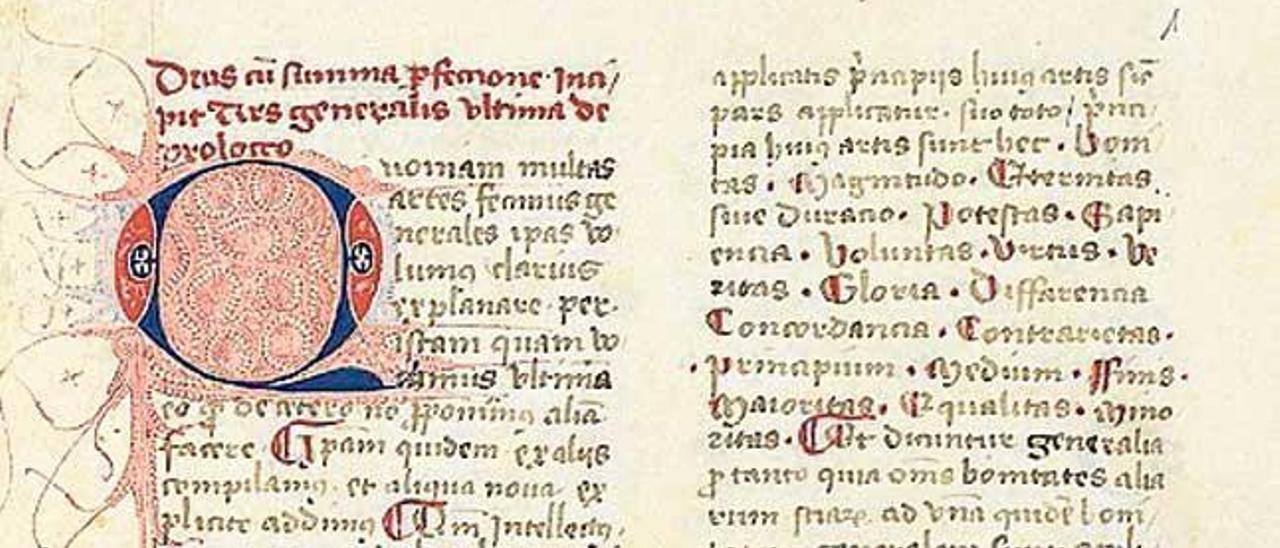 Deus cu summa pfectione. Inci/
pit Ars generalis vltima de
prologo
Quoniam multas
artes fecimus ge
nerales ipas vo
lumꝯ clarius
explanare per
istam quam vo
camus vltima
eo ꝙ de cetero no ꝓponimꝯ alia
facere Ipam quidem ex alijs
compilamꝯ. et aliqua noua ex
plicite addimꝯ Qm Intellectꝯ.
1
applicatis pncipijs huiꝯ artis sic
pars applicatur. suo toto/ pnci/
pia huiꝯ artis sunt hec. Boni
tas. Magnitudo. Eternitas.
siue duratio. Potestas. Sapi
encia. Voluntas. Virtus. Ve
ritas. Gloria. Differencia
Concordancia. Contrarietas.
Principium. Medium. Finis.
Maioritas. Equalitas. Mino
ritas. Et dicuntur generalia
ꝓ tanto quia oms bonitates alia
rum sciaꝝ ad vna quide boni/